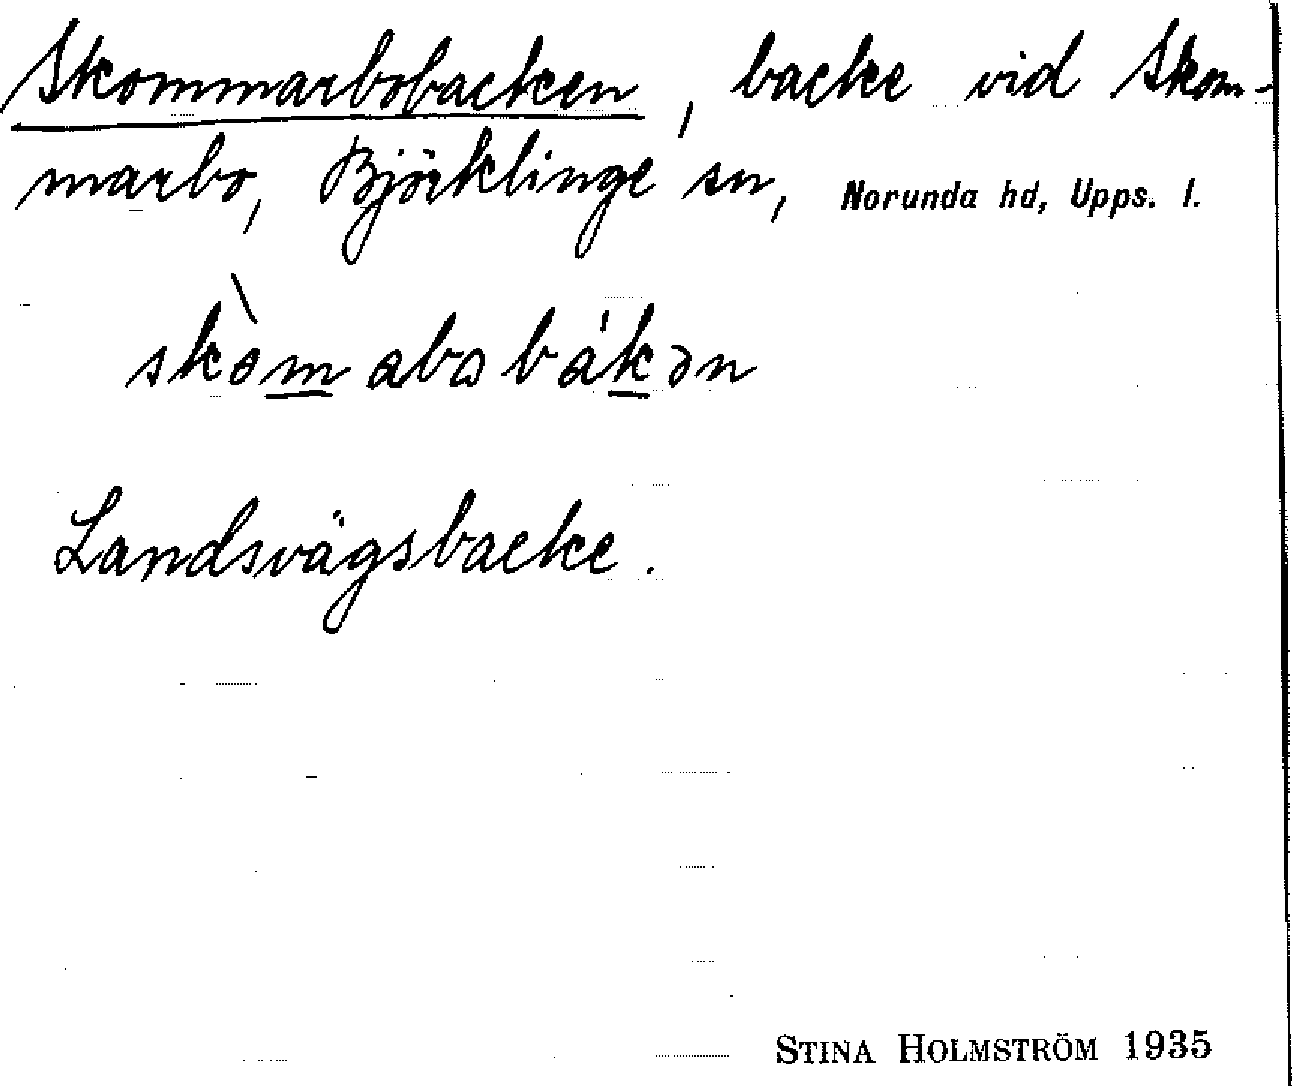 Skommarbobacken, backe vid Skom-
marbo, Björklinge sn, Norunda hd, Upps. l.
skòmabobákən
Landsvägsbacke.
STINA HOLMSTRÖM 1935